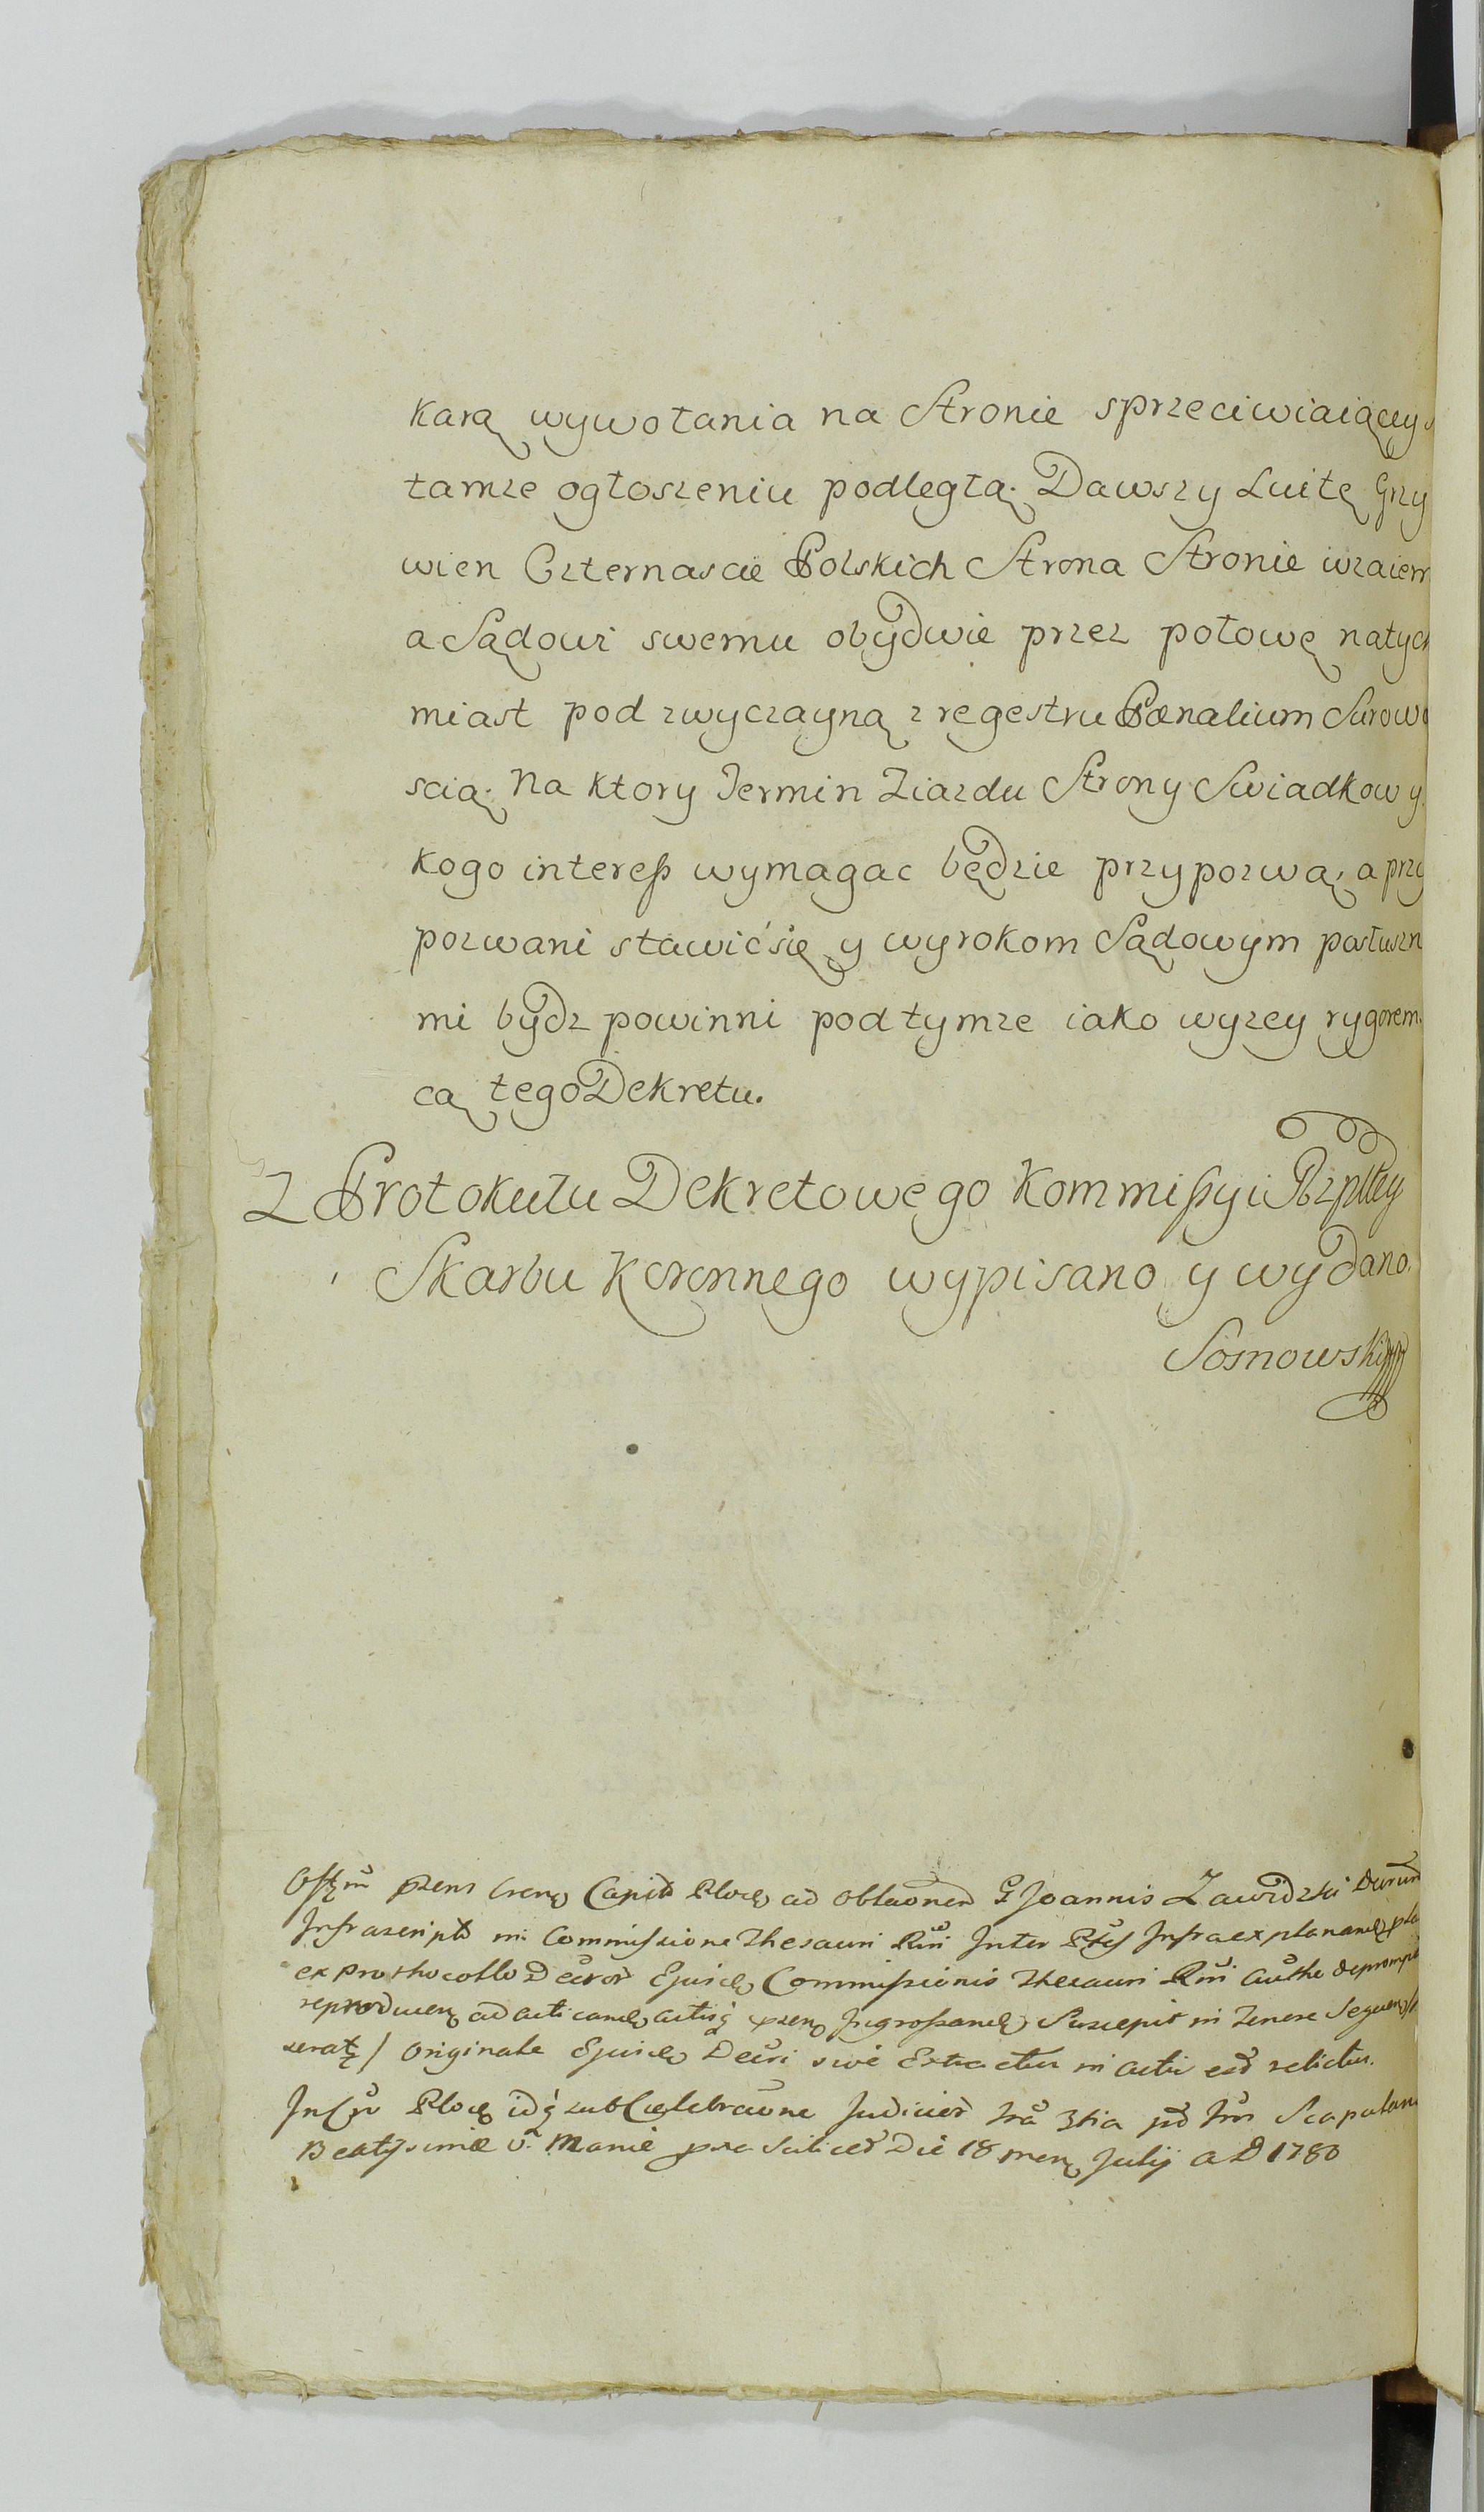 karą wywołania na Stronie sprzeciwiaiącey s
tamże ogłoszeniu podległą. Dawszy Luitę Grzy
wien Czternascie Polskich Strona Stronie wzaiem
a Sądowi swemu obydwie przez połowę natych
miast pod zwyczayną z regestru Pœnalium Surowo
scią. Na ktory Termin Ziazdu Strony Swiadkow y
kogo interess wymagac będzie przypozwą, a przy
pozwani stawić się y wyrokom Sądowym posłuszn
mi bydz powinni pod tymze iako wyzey rygorem.
cą tego Dekretu.
Z Protokułu Dekretowego Kommissyi Rzpltey
Skarbu Koronnego wypisano y wydano.
Sosnowski
Capit Ploc ad oblaonem G Joannis Zawidzki
Infrascript in Commissione Thesauri Rni Inter Ptes Infra explanand
ex prothocollo Decror Ejusd Commissionis Thesauri Rni Authe deprompt
reproducen ad acticand actisq pren Ingrossand Suscepit in Tenore Sequen
Originale Ejusd Decri sive Extractus in actis est relictus.
Ploc idq sub Celebraone Judicior Scapulam
Beatissimæ V. Mariæ pra Scilicet Die 18 men Julij A D 1780